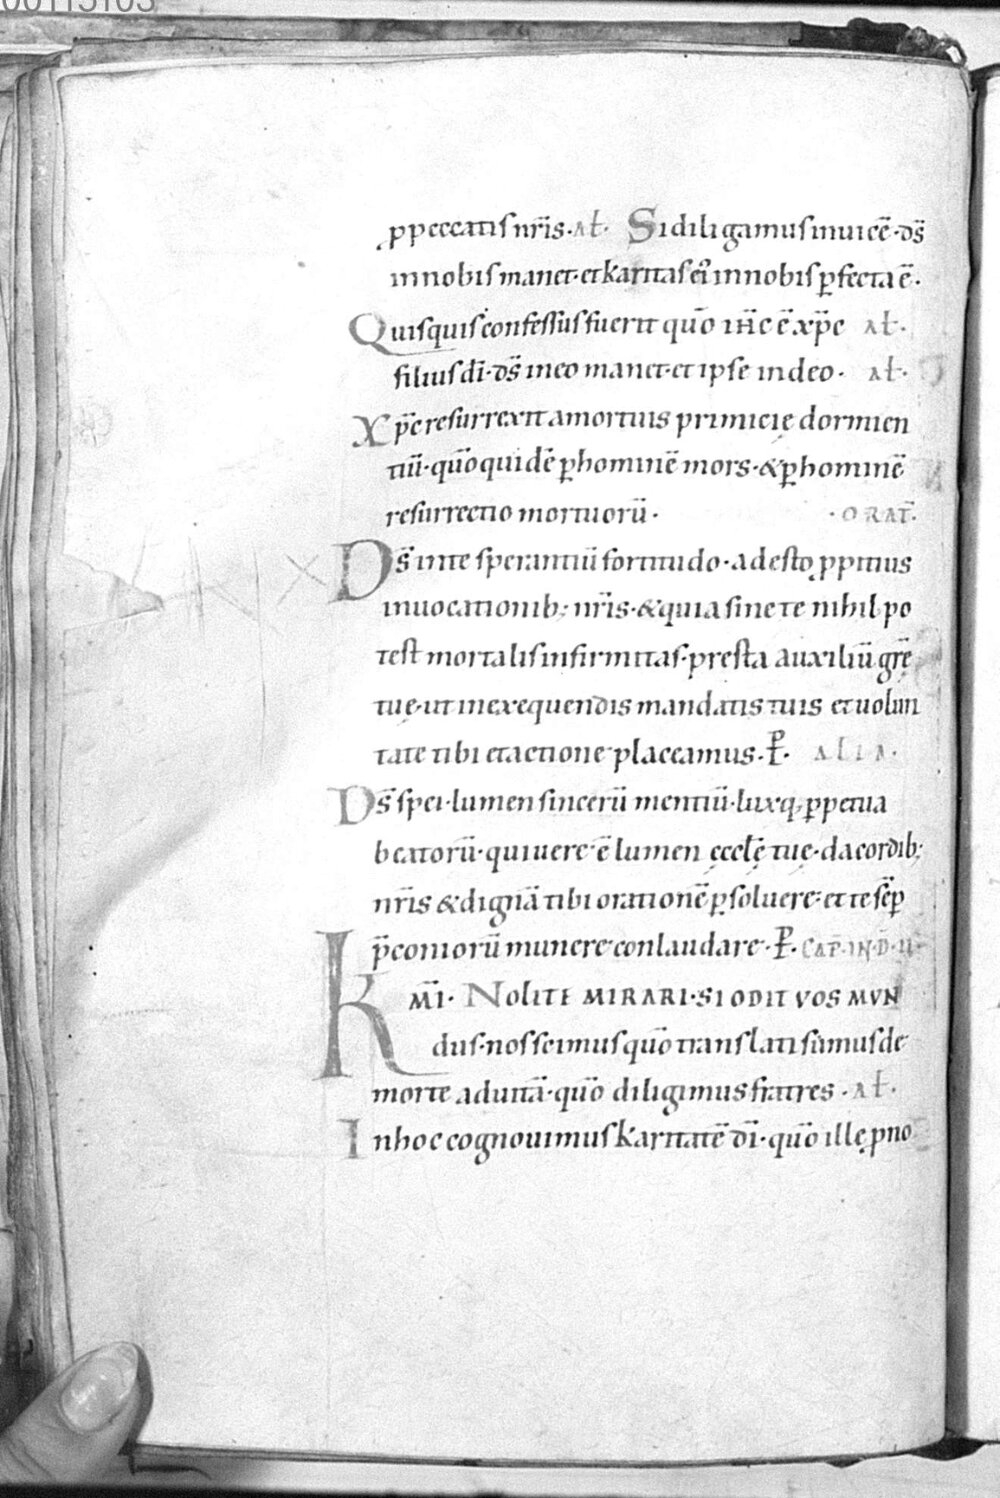 00115103
ꝓ peccatis nr̄is· Aƚ· Si diligamus inuicē· ds̄
in nobis manet· et karitas ei᷒ in nobis ꝑfecta ē·
Quisquis confessus fuerit quō ih̄c ē xp̄c Aƚ·
filius dī· ds̄ in eo manet· et ipse in deo· Aƚ·
Xp̄c resurrexit a mortuis primicię dormien
tiū· quō quidē ꝑ hominē mors· & ꝑ hominē
resurrectio mortuorū· · ORAT̄·
Ds̄ in te sperantiū fortitudo· adesto ꝓpitius
inuocationib; nr̄is· & quia sine te nihil po
test mortalis infirmitas· presta auxiliū grę̄
tuę· ut in exequendis mandatis tuis et uolun
tate tibi et actione placeamus· P̄· ALIA·
Ds̄ spei· lumen sincerū mentiū· luxq; ꝑpetua
beatorū· qui uere ē lumen ęccƚę tuę· da cordib;
nr̄is & dignā tibi orationē ꝑsoluere· et te sēꝑ
p̄coniorū munere conlaudare· P̄· CAP̄· IN· D̄· II·
KM̄I· NOLITE MIRARI· SI ODIT VOS MVN
dus· nos scimus quō translati sumus de
morte ad uitā· quō diligimus fratres· Aƚ·
In hoc cognouimus karitatē dī· quō ille ꝓ no